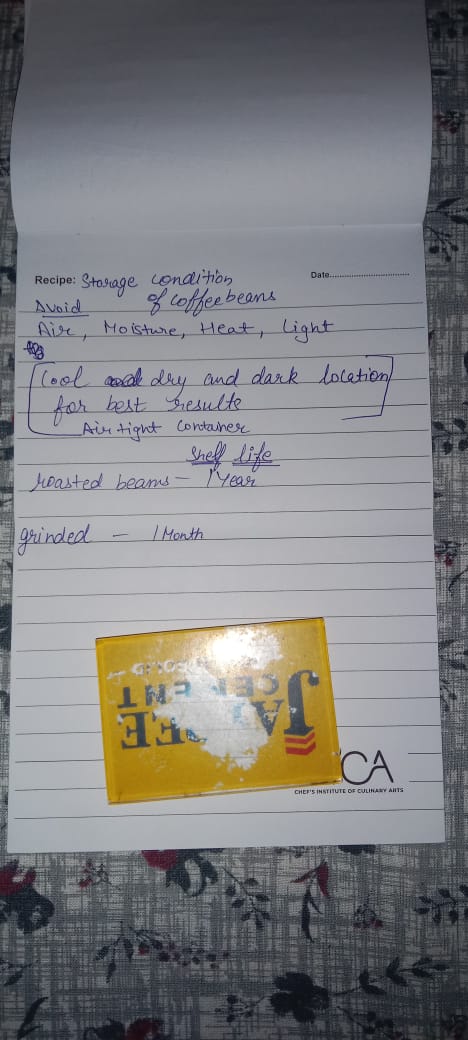 Recipe: Storage condition
Date
of coffee beans
Avoid
Air, Moisture, Heat, Light
Cool dry and dark location
for best results
Air tight Container
Shelf life
roasted beams - 1 Year
grinded - 1 Month
JAYPEE
CEMENT
SOLID
CA
CHEF'S INSTITUTE OF CULINARY ARTS